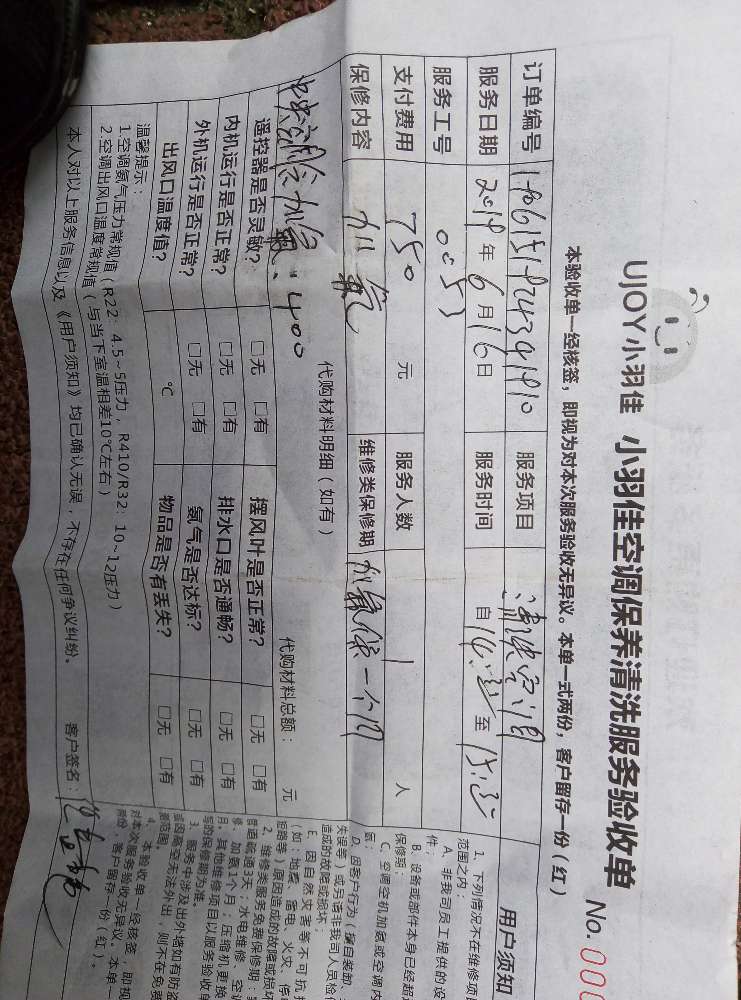 UJOY小羽佳 小羽佳空调保养清洗服务验收单 No. 000
本验收单一经核签，即视为对本次服务验收无异议。本单一式两份，客户留存一份（红）
订单编号 服务项目 清洗空调
服务日期 2019年6月16日 服务时间 自14:30至15:30
服务工号 0053
支付费用 750 元 服务人数 1 人
保修内容 加氟 维修类保修期 加氟保一个月
代购材料明细（如有） 代购材料总额： 元
中央空调 加氟：400
遥控器是否灵敏？ □无 □有 摆风叶是否正常？ □无 □有
内机运行是否正常？ □无 □有 排水口是否通畅？ □无 □有
外机运行是否正常？ □无 □有 氨气是否达标？ □无 □有
出风口温度值？ ℃ 物品是否有丢失？ □无 □有
温馨提示：
1.空调氨气压力常规值（R22：4.5~5压力，R410/R32：10~12压力）
2.空调出风口温度常规值（与当下室温相差10℃左右）
本人对以上服务信息以及《用户须知》均已确认无误，不存在任何争议纠纷。 客户签名：
用户须知
1、下列情况不在维修项目
范围之内：
A、非我司员工提供的设
件；
B、设备或部件本身已经超过
保修期；
C、空调空机加氨或空调内
D、因客户行为（擅自装卸、
失误等）或另请非我司人员检修
造成的故障或损坏；
E、因自然灾害等不可抗拒
（如：地震、雷电、火灾、
短路等）原因造成的故障或损坏
2、维修类服务免费保修期：
管道疏通3天；水电维修、空调
修、加氨1个月；压缩机更换
月；其他维修项目以服务验收单
写的保修期为准。
3、服务中涉及出外墙如有防盗
或因高空无法外出，则不在免费
4、本验收单一经核签，即视
对本次服务验收无异议。本单一
两份，客户留存一份（红）。